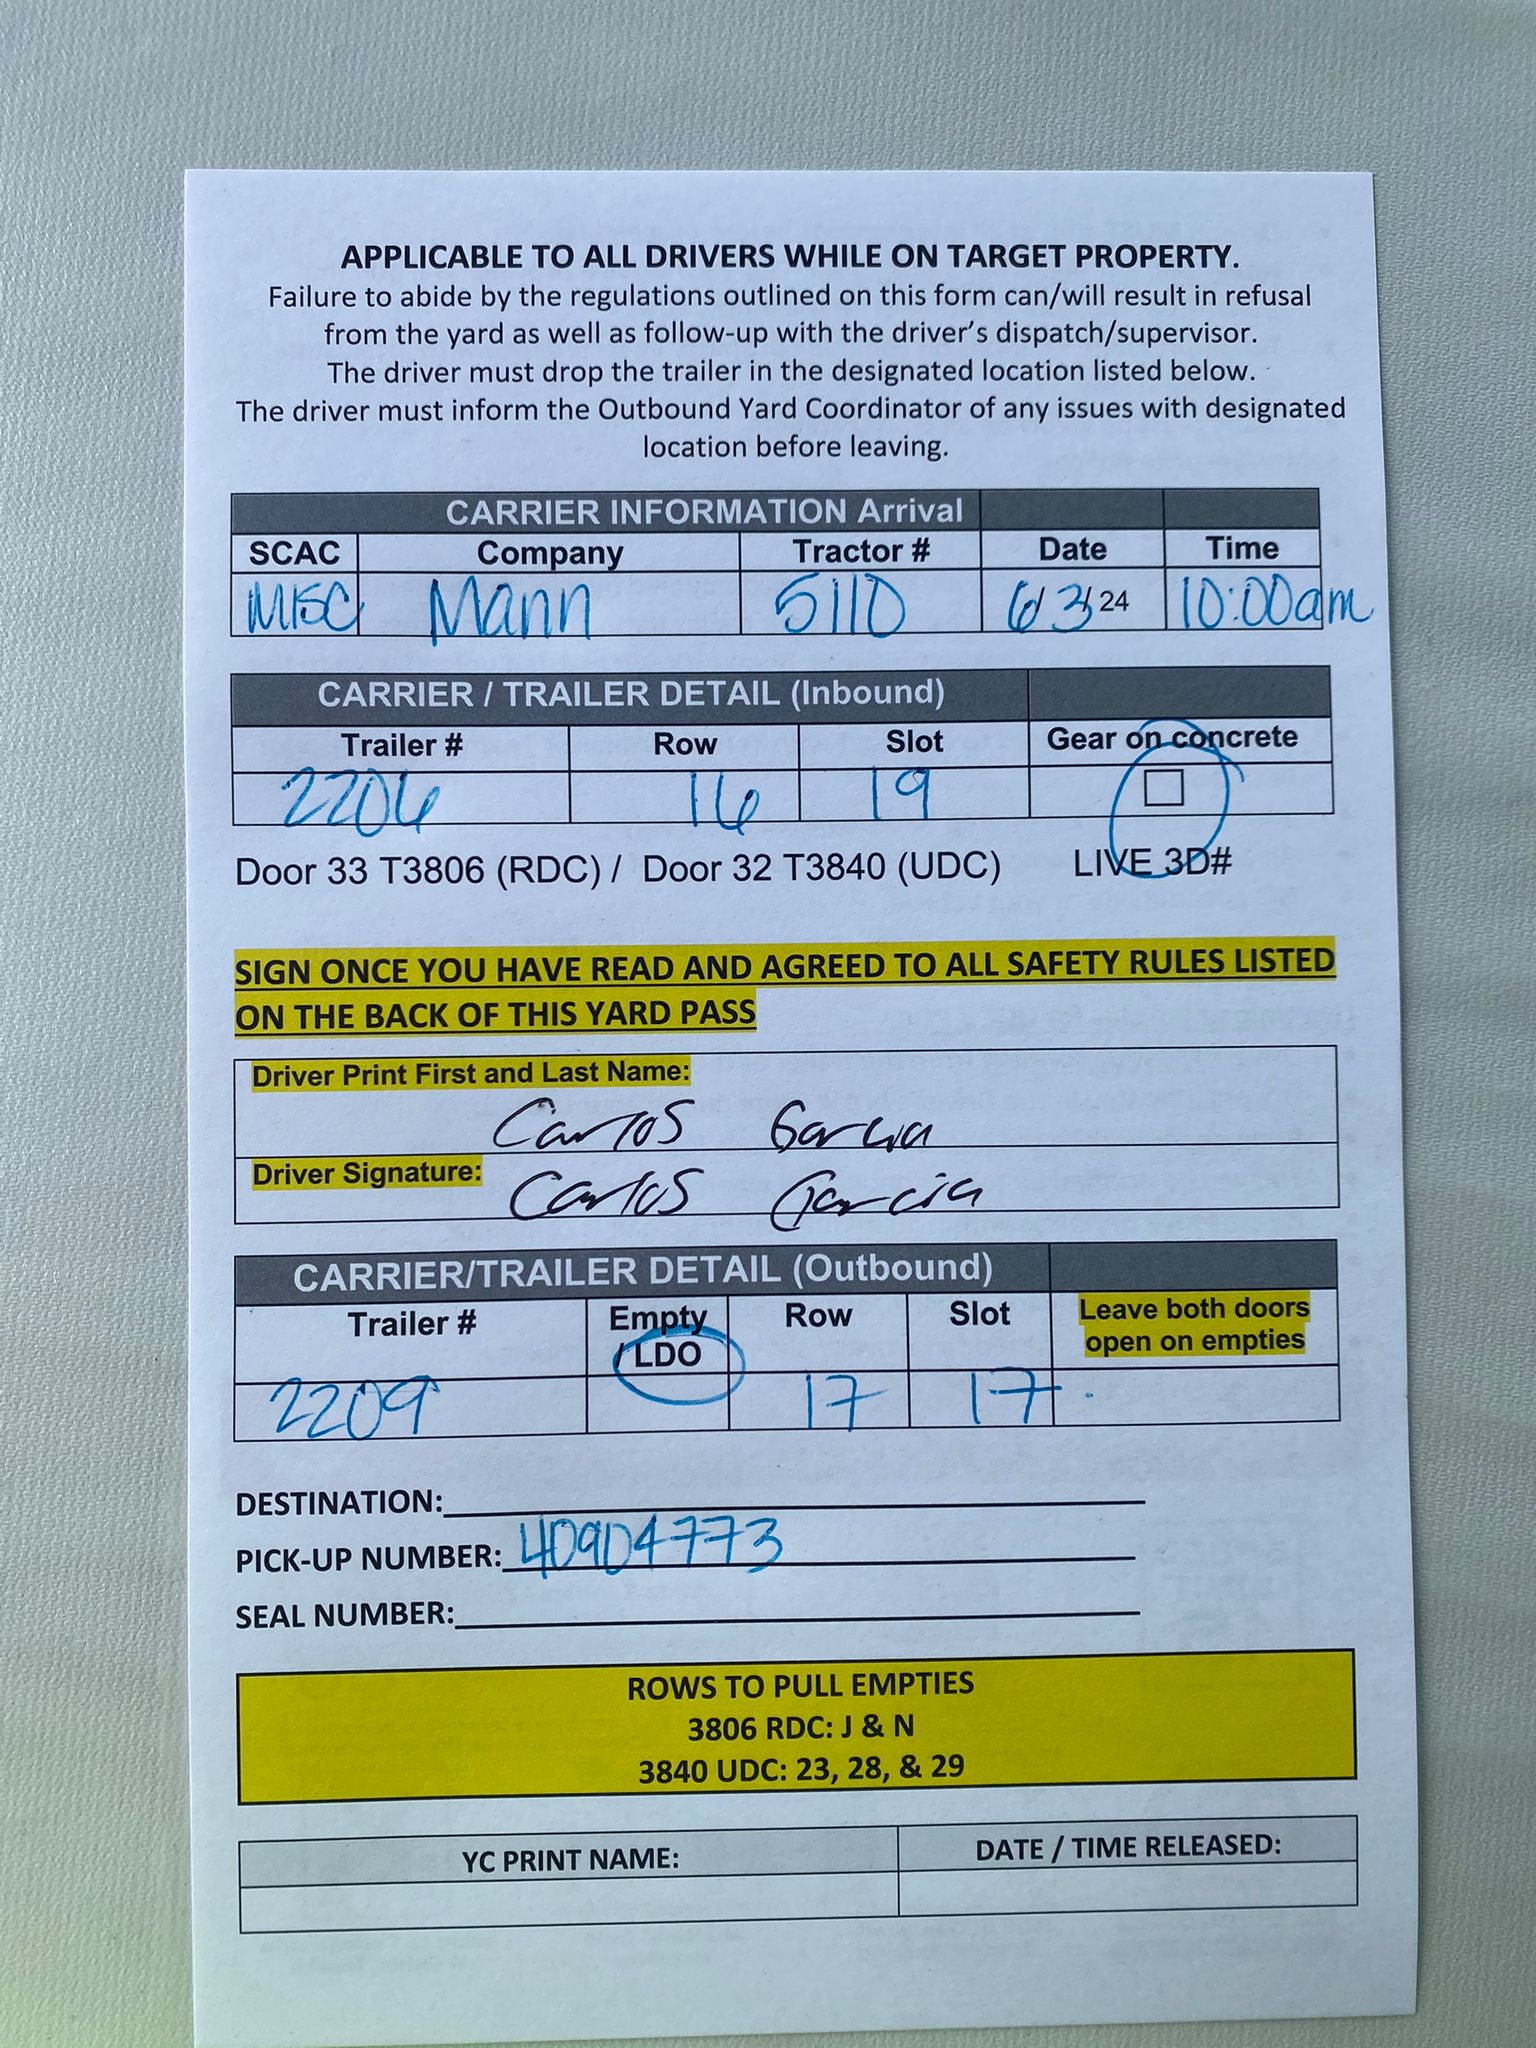 APPLICABLE TO ALL DRIVERS WHILE ON TARGET PROPERTY.
Failure to abide by the regulations outlined on this form can/will result in refusal
from the yard as well as follow-up with the driver's dispatch/supervisor.
The driver must drop the trailer in the designated location listed below.
The driver must inform the Outbound Yard Coordinator of any issues with designated
location before leaving.
CARRIER INFORMATION Arrival
SCAC Company Tractor # Date Time
MISC Mann 5110 6/3/24 10:00am
CARRIER / TRAILER DETAIL (Inbound)
Trailer # Row Slot Gear on concrete
2206 16 19 ☐
Door 33 T3806 (RDC) / Door 32 T3840 (UDC) LIVE 3D#
SIGN ONCE YOU HAVE READ AND AGREED TO ALL SAFETY RULES LISTED
ON THE BACK OF THIS YARD PASS
Driver Print First and Last Name:
Carlos Garcia
Driver Signature: Carlos Garcia
CARRIER/TRAILER DETAIL (Outbound)
Trailer # Empty / LDO Row Slot Leave both doors open on empties
2209 17 17
DESTINATION:
PICK-UP NUMBER: 40904773
SEAL NUMBER:
ROWS TO PULL EMPTIES
3806 RDC: J & N
3840 UDC: 23, 28, & 29
YC PRINT NAME: DATE / TIME RELEASED: